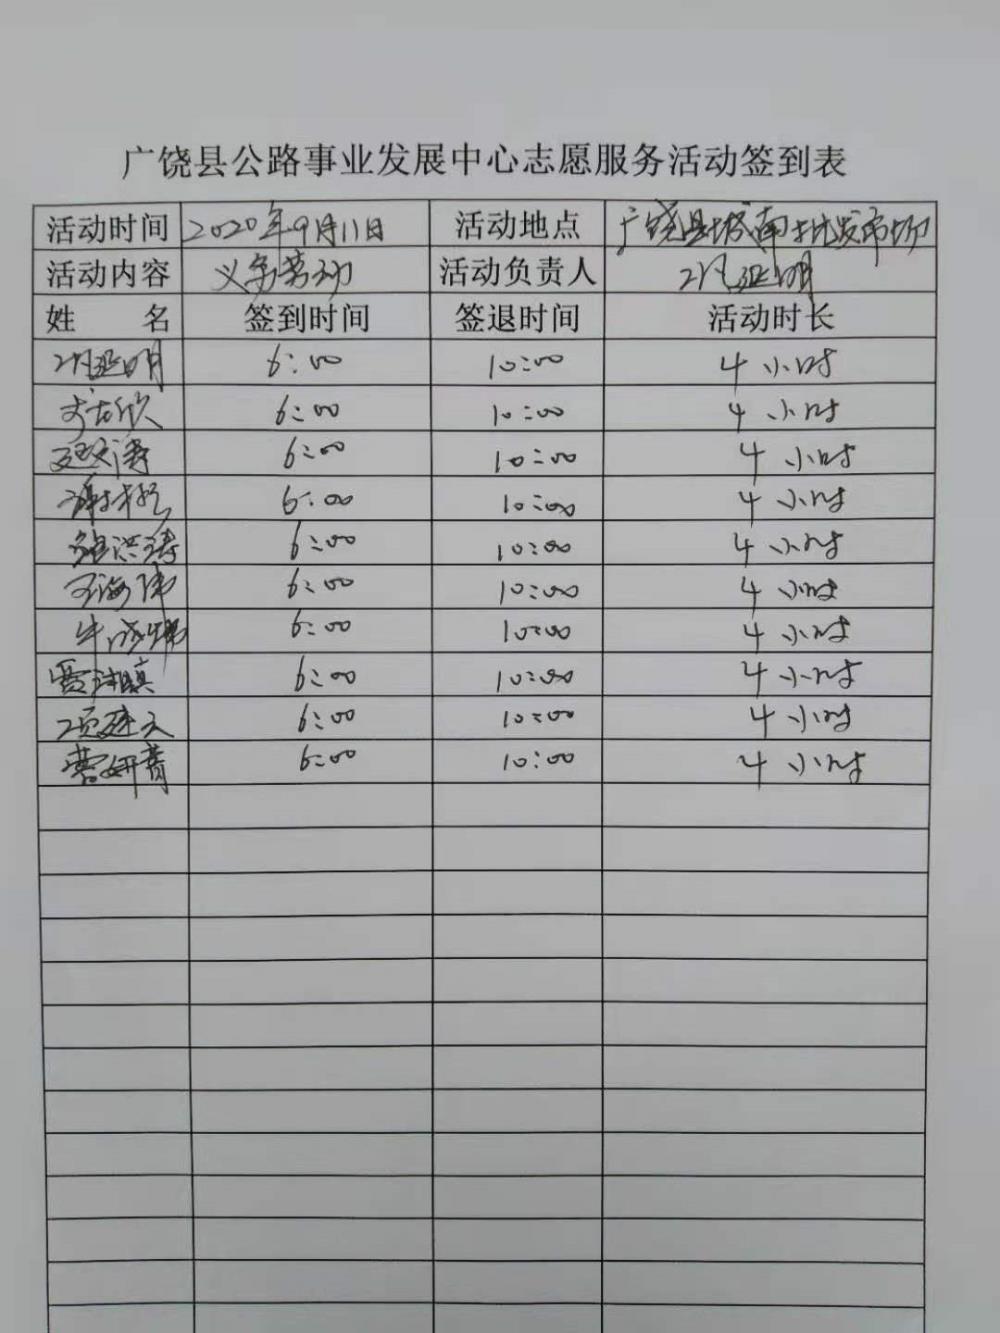 广饶县公路事业发展中心志愿服务活动签到表
活动时间 2020年9月11日 活动地点 广饶县城南批发市场
活动内容 义务劳动 活动负责人 延明
姓 名 签到时间 签退时间 活动时长
延明 6:00 10:00 4小时
6:00 10:00 4小时
涛 6:00 10:00 4小时
谢 6:00 10:00 4小时
洪涛 6:00 10:00 4小时
王海伟 6:00 10:00 4小时
牛 6:00 10:00 4小时
贾 6:00 10:00 4小时
项建文 6:00 10:00 4小时
曹妍菁 6:00 10:00 4小时